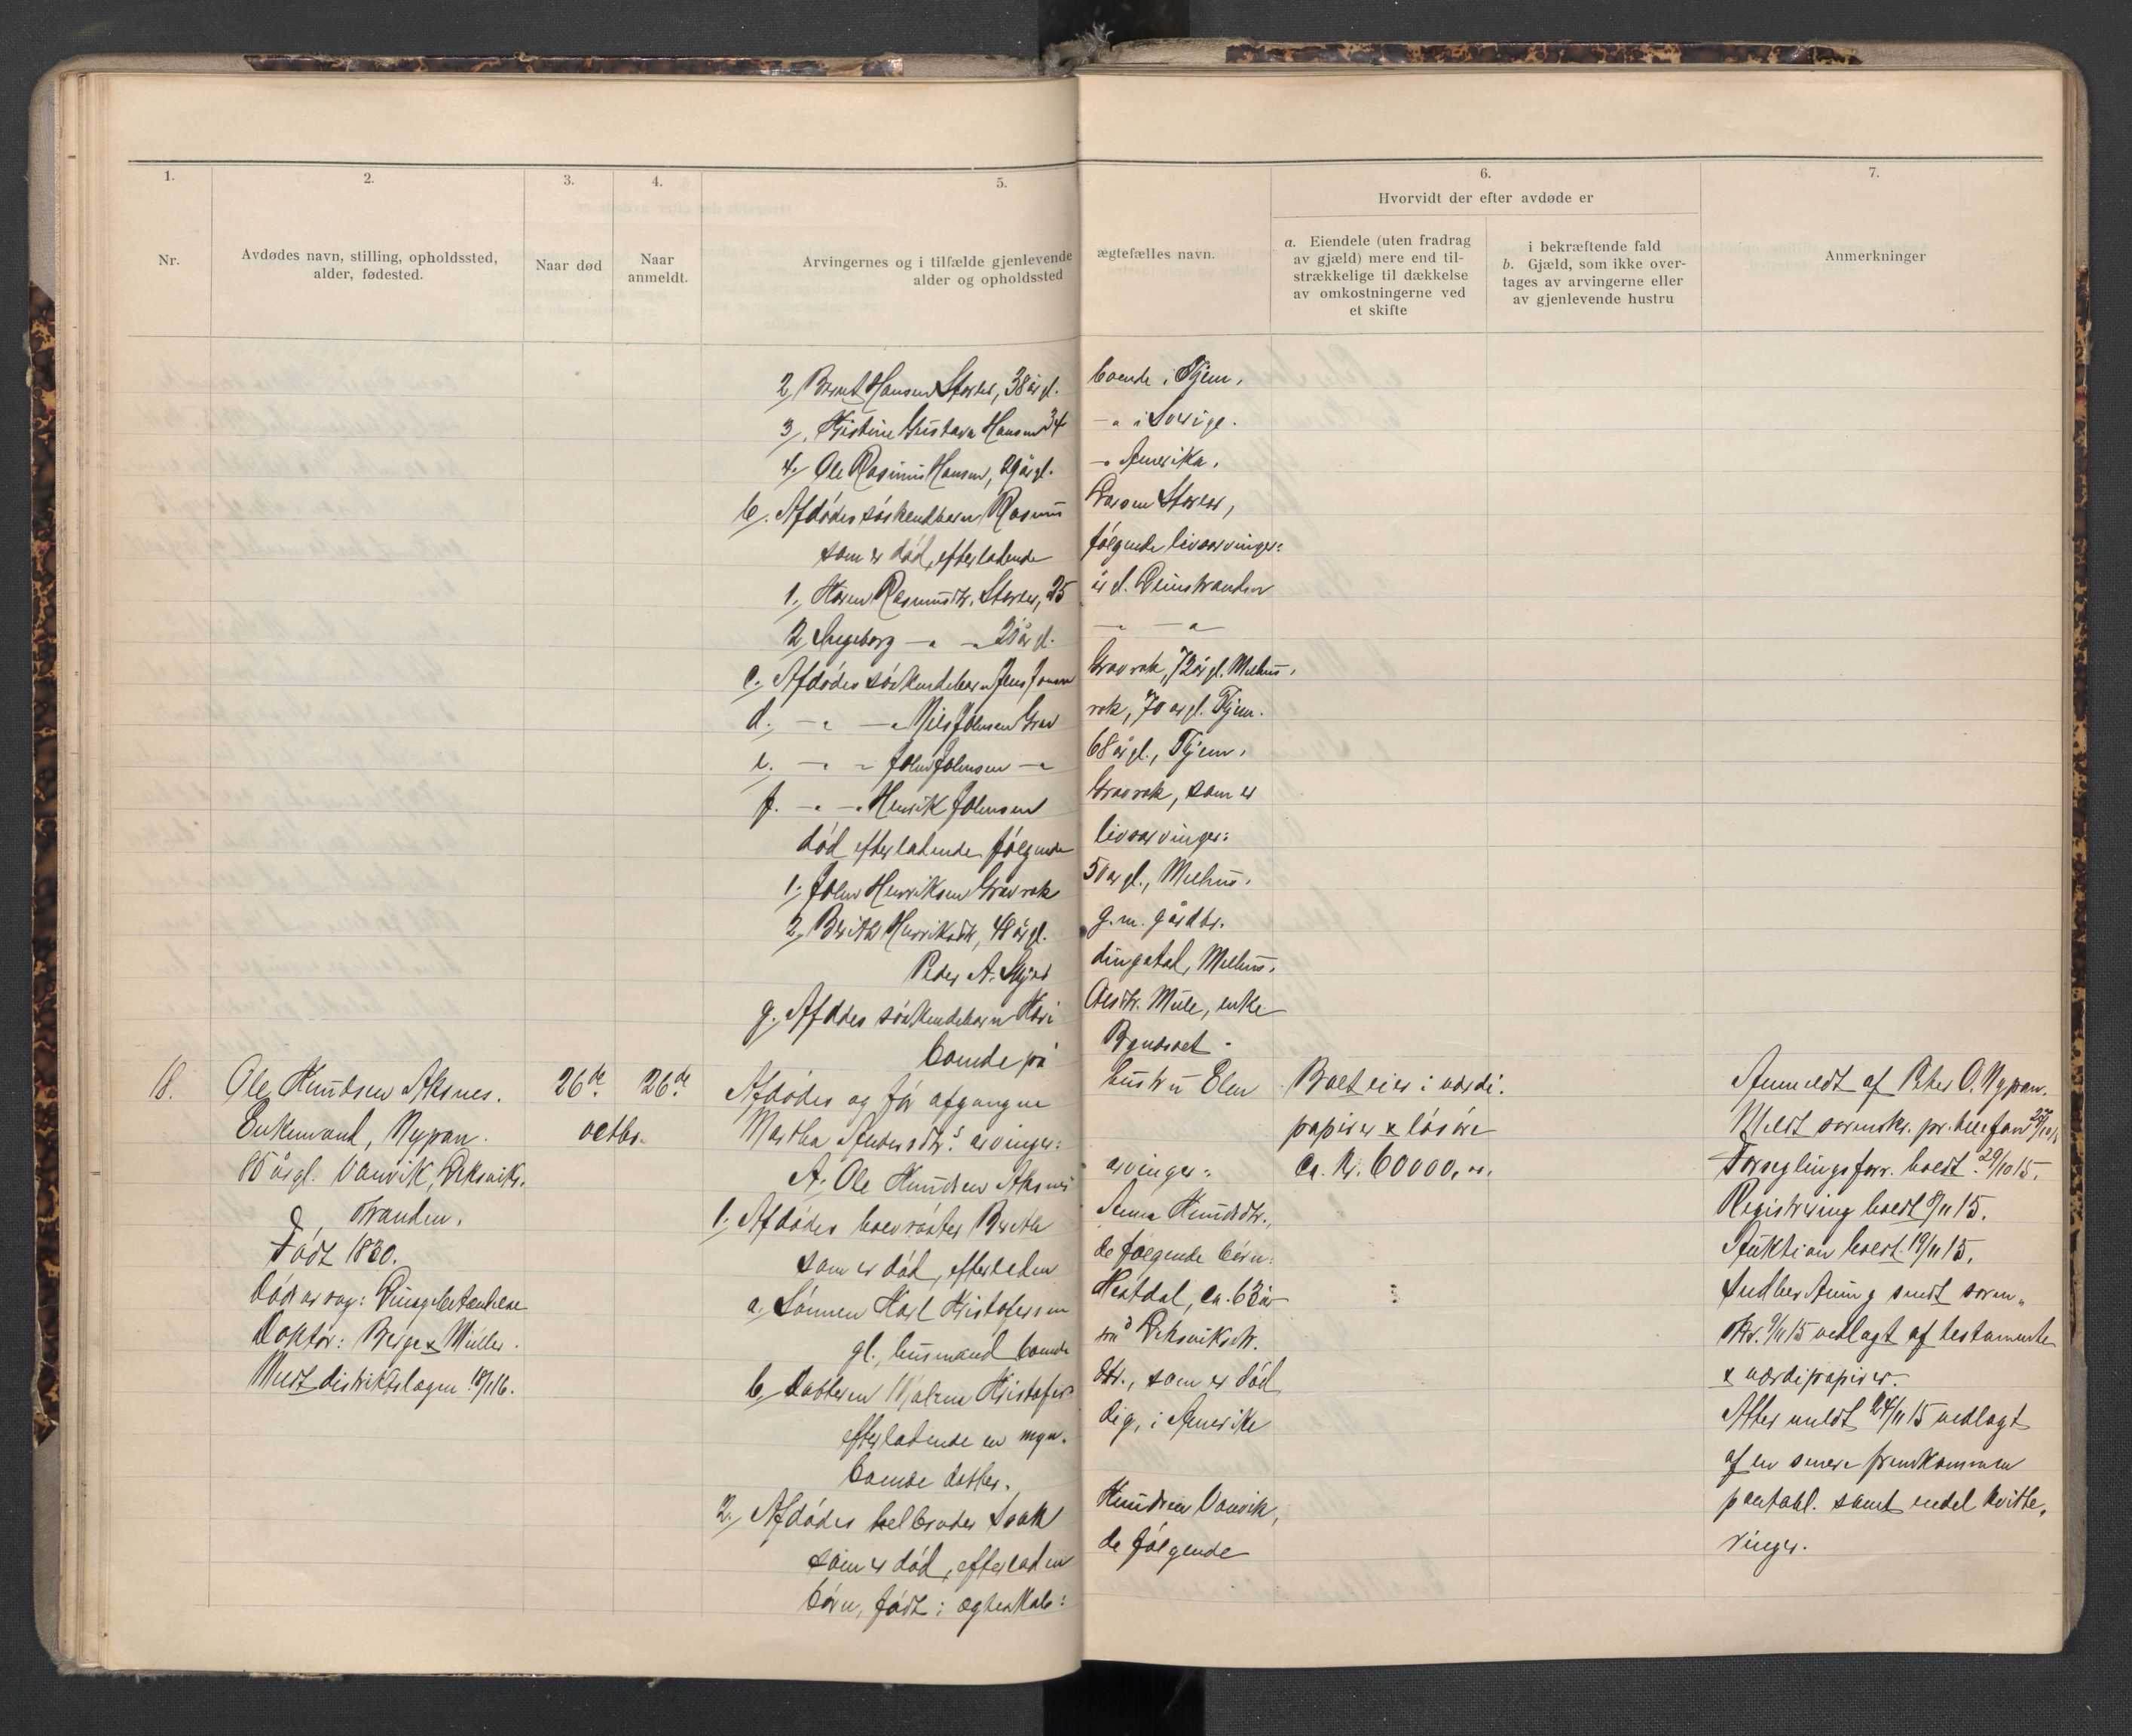 1.
2.
3.
4.
5.
6.
7.
Nr.
Avdødes navn, stilling, opholdssted,
alder, fødested.
Naar død
Naar
anmeldt.
Arvingernes og i tilfælde gjenlevende ægtefælles navn.
alder og opholdssted
Hvorvidt der efter avdøde er
a. Eiendele (uten fradrag
av gjæld) mere end til-
strækkelige til dækkelse
av omkostningerne ved
et skifte
i bekræftende fald
b. Gjæld, som ikke over-
tages av arvingerne eller
av gjenlevende hustru
Anmerkninger
2, Bernt Hansen Storler, 38 år gl. boende i Thjem.
3, Kristine Gustava Hansen 34 — " i Sverige.
4, Ole Rasmus Hansen, 29 år gl. — " Amerika.
b, Afdødes søskendbarn Rasmus Larsen Storler,
som er død, efterladende følgende livsarvinger:
1, Karen Rasmusdtr. Storler, 25 år gl. Leinstranden
2, Ingeborg — " — " 21 år gl. — " — "
c, Afdødes søskendebarn Jens Johnsen Gravrok, 72 år gl. Melhus.
d, — " — " Nils Johnsen Gravrok, 70 år gl. Thjem.
e, — " — " John Johnsen — " 68 år gl., Thjem.
f. — " — " Henrik Johnsen Gravrok, som er
død efterladende følgende livsarvinger:
1, John Henriksen Gravrok 50 år gl., Melhus.
2, Berith Henriksdtr, 48 år gl. g. m. gårdbr.
Peder A. Skjerdingstad, Melhus.
g, Afdødes søskendebarn Kari Olsdtr. Mule, enke
boende på Bynesset.
18. Ole Knudsen Aksnes. 26de 26de Afdødes og før afgangne hustru Elen Boet eier i værdi- Anmeldt af Peter O. Nypan.
Enkemand, Nypan. octbr. Martha Andersdtr.s arvinger: papirer & løsøre Meldt sorenskr. pr. telefon 27/10 15
85 år gl. Vanvik, Leksvik. A. Ole Knudsen Aksnes arvinger: Ca. Kr. 60000,00. Forseglingsforr. holdt 29/10 15.
Stranden. 1, Afdødes helsøster Berith Anna Knudsdtr., Registrering holdt 8/11 15.
Født 1830. som er død, efterladende følgende børn: Auktion holdt 19/11 15.
Dødsårsag: Lungebetændelse a, Sønnen Karl Kristofersen Hestdal, ca. 63 år Indberetning sendt soren-
Doktor: Berge & Müller. gl., husmand boende Leksvikstr. skr. 9/11 15 vedlagt af testamente
Meldt distriktslægen 18/1 16. b, Datteren Hjalma Kristofersdtr., som er død & værdipapirer.
efterladende en myndig, i Amerika Atter meldt 24/11 15 vedlagt
boende datter. af en senere fremkommen
2, Afdødes helbroder Isak Knudsen Vanvik, pantobl. samt endel kvitte-
som er død, efterladende følgende ringer.
børn, født i ægteskab: